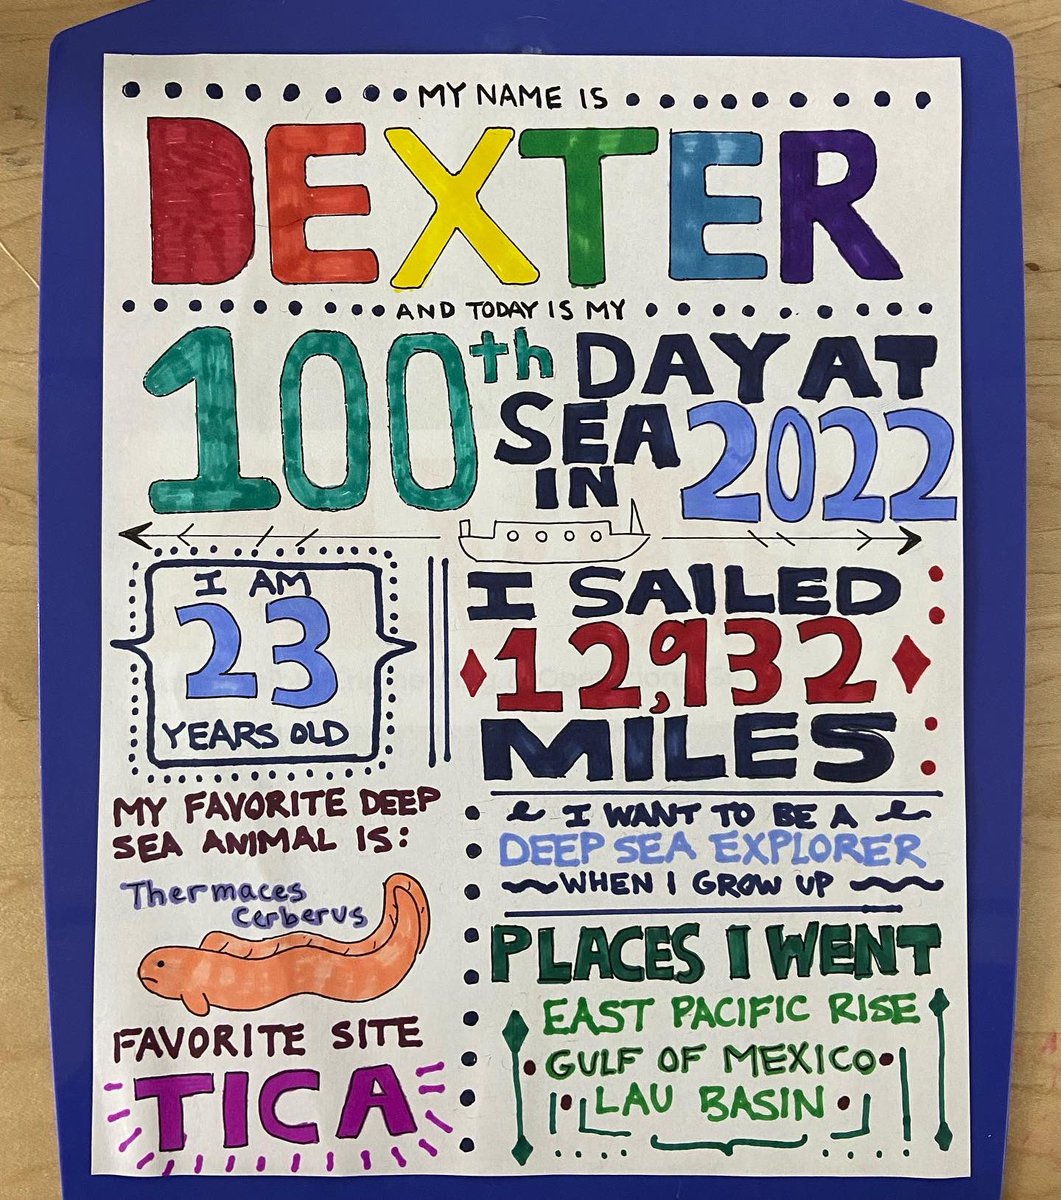 MY NAME IS
DEXTER
AND TODAY IS MY
100th DAY AT
SEA
IN 2022
I AM
23
YEARS OLD
I SAILED
12,932
MILES
MY FAVORITE DEEP
SEA ANIMAL IS:
Thermaces
Cerberus
FAVORITE SITE
TICA
I WANT TO BE A
DEEP SEA EXPLORER
WHEN I GROW UP
PLACES I WENT
EAST PACIFIC RISE
GULF OF MEXICO
LAU BASIN